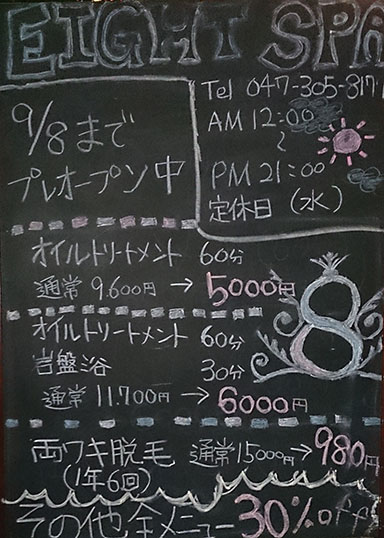 EIGHT SPA
Tel 047-305-817
AM 12:00
〜
PM 21:00
定休日（水）
9/8まで
プレオープン中
オイルトリートメント 60分
通常 9.600円 → 5000円
オイルトリートメント 60分
岩盤浴 30分
通常 11.700円 → 6000円
8
両ワキ脱毛 通常15000円→980円
(1年6回)
その他全メニュー30%off